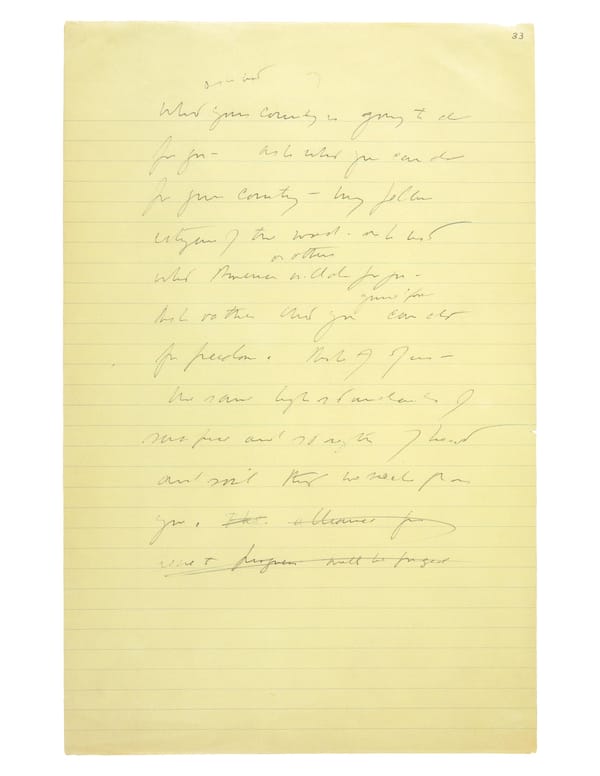 33
ask not
what your country is going to do
for you – ask what you can do
for your country – my fellow
citizens of the world – ask not
or others
what America will do for you –
Ask rather what you can do
for freedom. Ask of us –
the same high standards of
sacrifice and strength of heart
and will that we seek from
you. The alliance for
progress will be forged